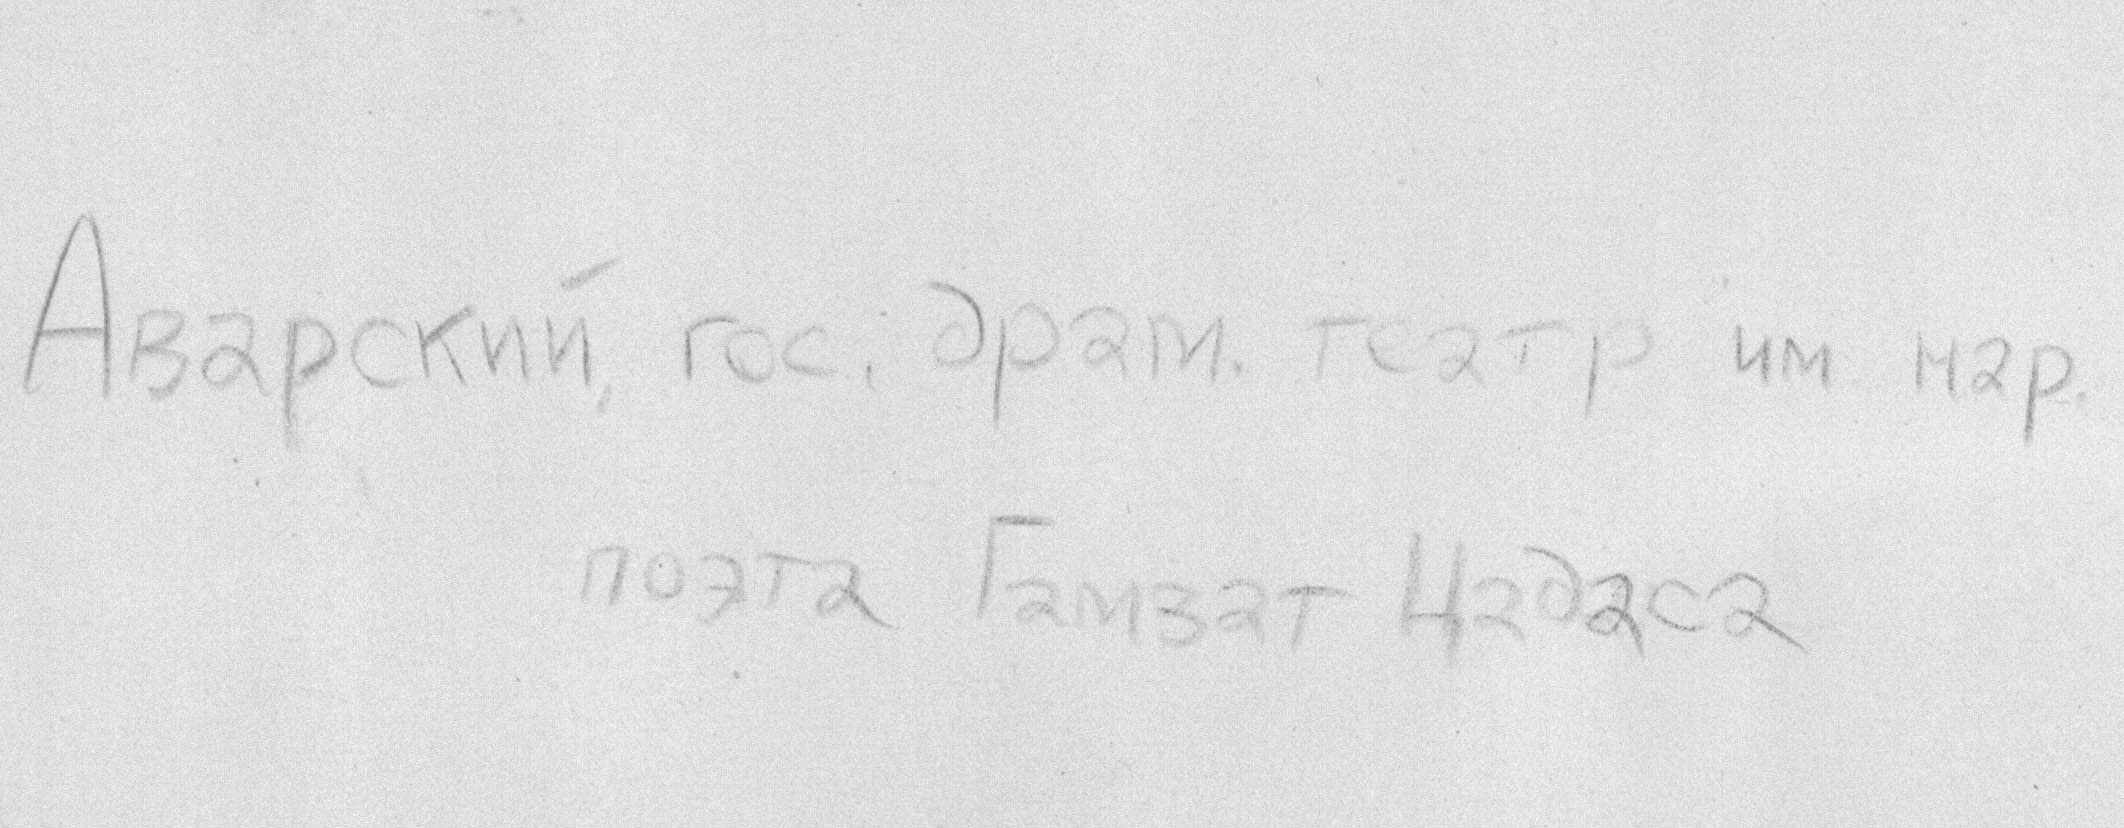 Аварский, гос. драм. театр им нар.
поэта Гамзат Цадаса